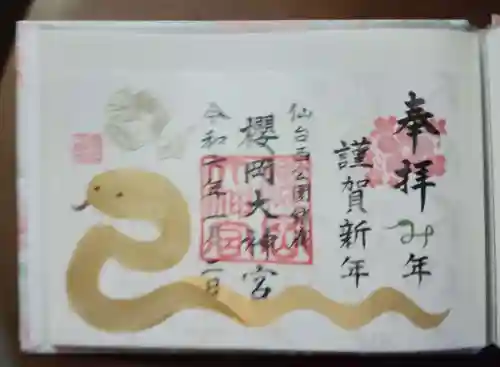 奉拝 み年
謹賀新年
仙台西公園鎮座
櫻岡大神宮
令和七年一月二日